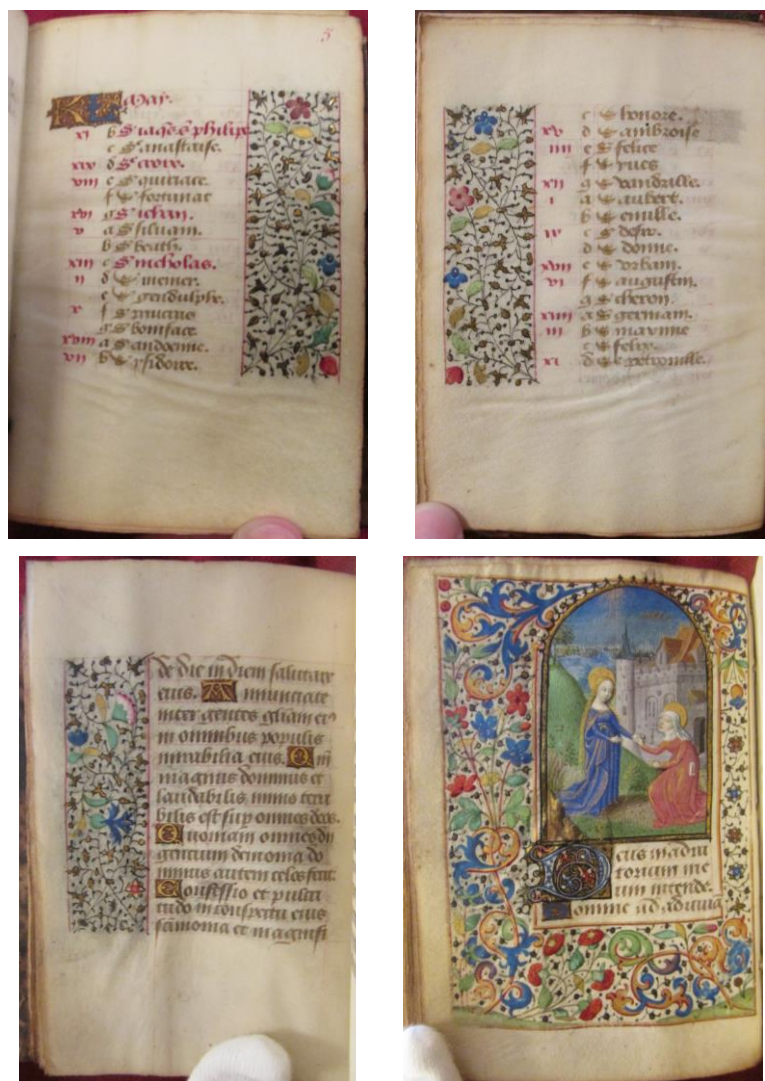 5
KL May.
xi b S iaques s phılipe
c S anastaise.
xix d S croix.
viii e S quiriace.
f S fortunat
xvi g S iehan.
v a S siluain.
b S
xiii c S nicholas.
ii d S
e S gendulphe.
x f S
g S boniface.
xviii a S
vii b S ysidoire.
c S honore.
xv d S ambroise
iiii e S felice
f S yues
xii g S vandrille.
i a S aubert.
b S emille.
ix c S
d S donne.
xvii e S vrbain.
vi f S augustin.
g S cheron.
xiiii a S germain.
iii b S maxime
c S felix.
xi d S petronille.
de die in diem salutare
eius. Annunciate
inter gentes gliam ei9
in omnibus populis
mirabilia eius. Qm
magnus dominus et
laudabilis nimis terri
bilis est sup omnes deos.
Quoniam omnes dii
gentium demonia do
minus autem celos fecit.
Confessio et pulcri
tudo in conspectu eius
scimonia et magnifi
Deus in adiu
torium me
um intende.
Domine ad adiuua